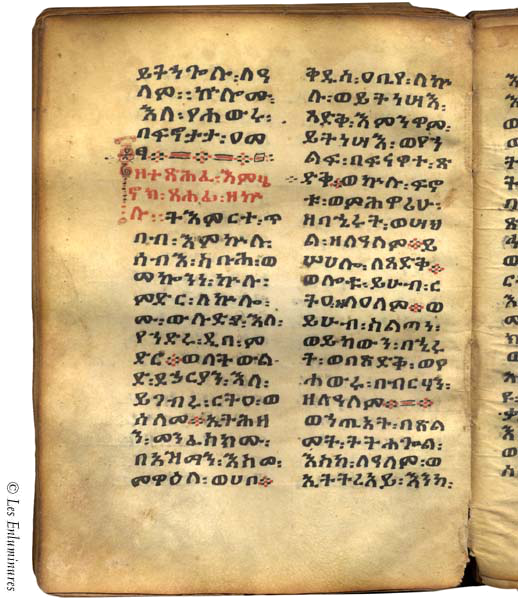 ይትኀጐሉ፡ለዓ
ለም፡ኵሎሙ፡
እለ፡የሐውሩ፡
በፍኖታተ፡ዐመ
ፃ፨
ዘተጽሕፈ፡እምሄ
ኖክ፡ጸሐፊ፡ዘኵ
ሉ፡ትእምርተ፡ጥ
በብ፡እምኵሉ፡
ሰብእ፡ስቡሕ፡ወ
መኰንነ፡ኵሉ፡
ምድር፡ለኵሎ
ሙ፡ውሉድየ፡እለ፡
የኀድሩ፡ዲበ፡ም
ድር፨ወለትውል
ድ፡ደኃርያን፡እለ፡
ይገብሩ፡ርትዐ፡ወ
ሰላመ፨ኢትሕዘ
ን፡መንፈስክሙ፡
በእዝማን፡እስመ፡
መዋዕለ፡ወሀቦ፨
ቅዱስ፡ዐቢየ፡ለኵ
ሉ፡ወይትነሣእ፡
ጻድቅ፡እምንዋም፡
ይትነሣእ፡ወየን
ልፍ፡በፍናዋተ፡ጽ
ድቅ፨ወኵሉ፡ፍኖ
ቱ፡ወምሕዋሪሁ፡
ዘበኂሩት፡ወሣህ
ል፡ዘለዓለም፨ይ
ሣሀሎ፡ለጻድቅ፨
ወሎቱ፡ይሁብ፡ር
ትዐ፡ዘለዓለም፨ወ
ይሁብ፡ስልጣነ፡
ወይከውን፡በኂሩ
ት፡ወበጽድቅ፡ወየ
ሐውሩ፡በብርሃን፡
ዘለዓለም፨
ወኀጢአት፡በጽል
መት፡ትትሐጐል፡
እስከ፡ለዓለም፡ወ
ኢትትረአይ፡እንከ፡
© Les Enluminures